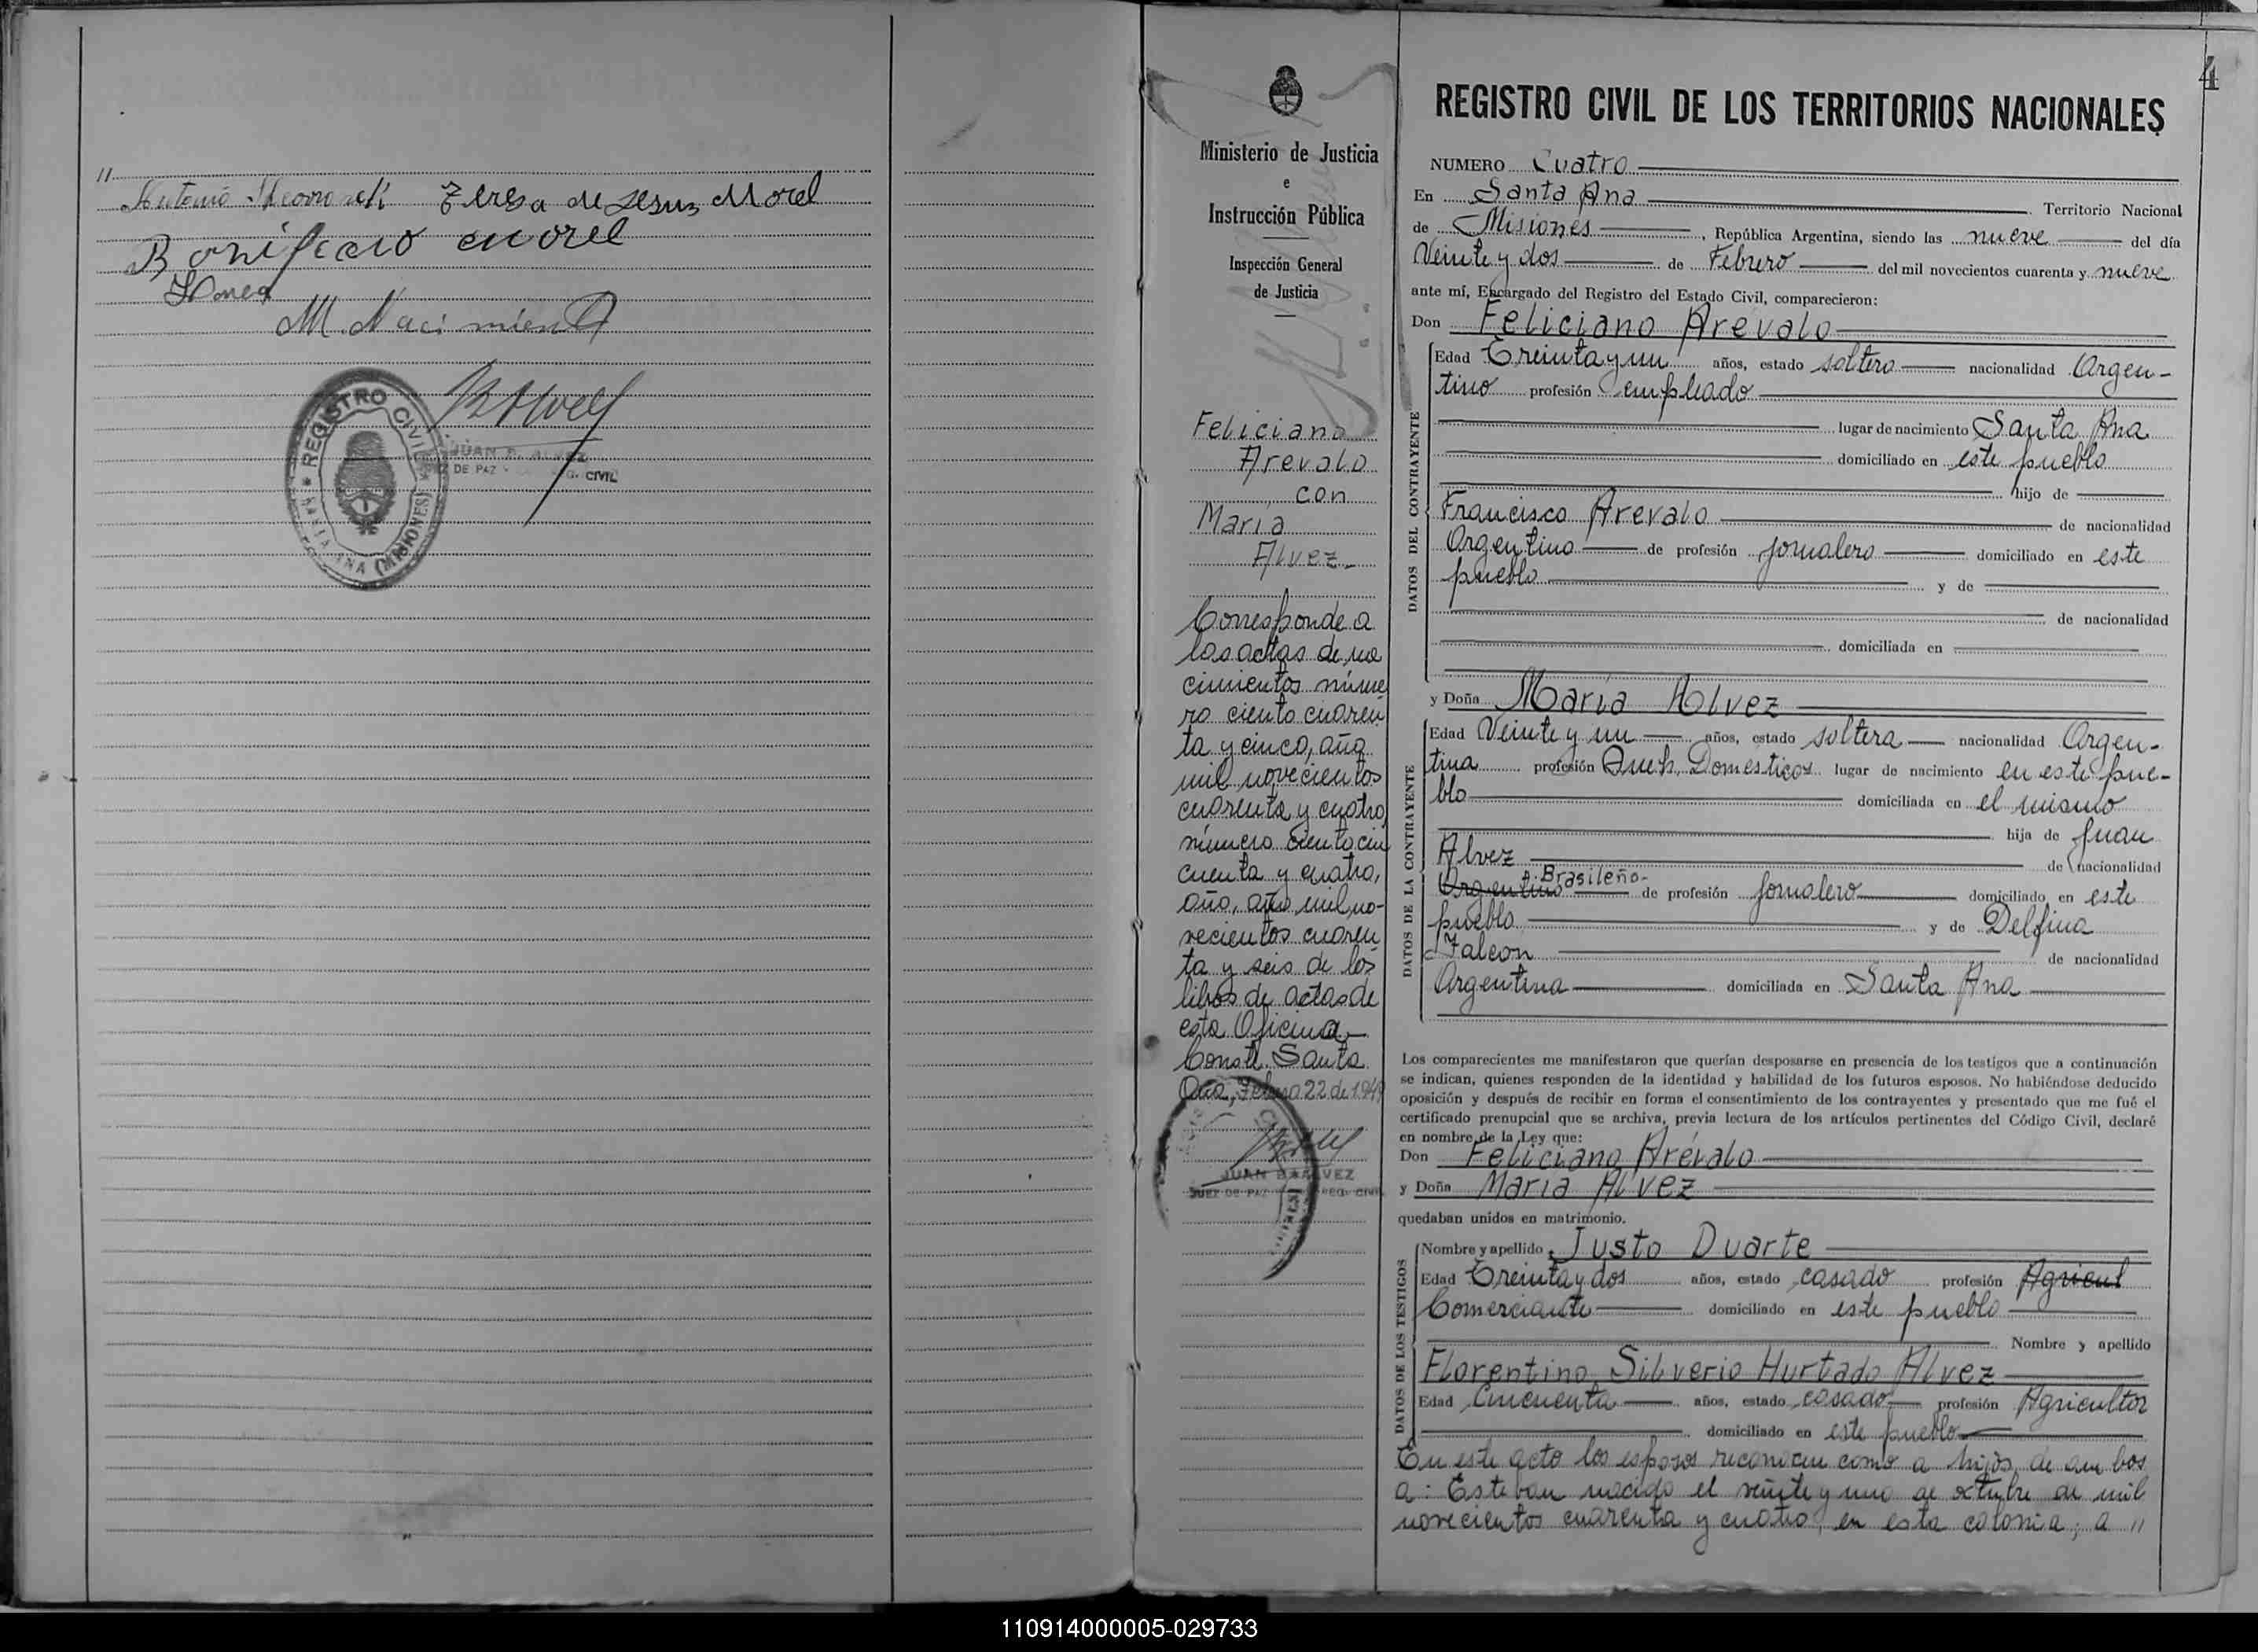 Teresa de Jesus Morel
Bonifacio Morel
M. Nacimiento
REGISTRO CIVIL
SANTA ANA (MISIONES)
JUAN
DE PAZ
G. CIVIL
4
Ministerio de Justicia
e
Instrucción Pública
Inspección General
de Justicia
Feliciano
Arevalo
con
Maria
Alvez
Corresponde a
las actas de na
cimientos núme
ro ciento cuaren
ta y cinco, año
mil novecientos
cuarenta y cuatro,
número ciento cin
cuenta y cuatro,
año, año mil no-
vecientos cuaren
ta y seis de los
libros de actas de
esta Oficina
Const. Santa
Ana, Febrero 22 de 1949
JUAN ALVEZ
JUEZ DE PAZ REG. CIVIL
REGISTRO CIVIL DE LOS TERRITORIOS NACIONALES
NUMERO Cuatro
En Santa Ana Territorio Nacional
de Misiones, República Argentina, siendo las nueve del día
Veinte y dos de Febrero del mil novecientos cuarenta y nueve
ante mí, Encargado del Registro del Estado Civil, comparecieron:
Don Feliciano Arevalo
DATOS DEL CONTRAYENTE
Edad Treinta y un años, estado soltero nacionalidad Argen-
tino profesión empleado
lugar de nacimiento Santa Ana
domiciliado en este pueblo
hijo de
Francisco Arevalo de nacionalidad
Argentino de profesión jornalero domiciliado en este
pueblo y de
de nacionalidad
domiciliada en
y Doña María Alvez
DATOS DE LA CONTRAYENTE
Edad Veinte y un años, estado soltera nacionalidad Argen-
tina profesión Queh. Domesticos lugar de nacimiento en este pue-
blo domiciliada en el mismo
hija de Juan
Alvez de nacionalidad
Argentino Brasileño- de profesión jornalero domiciliado en este
pueblo y de Delfina
Falcon de nacionalidad
Argentina domiciliada en Santa Ana
Los comparecientes me manifestaron que querían desposarse en presencia de los testigos que a continuación
se indican, quienes responden de la identidad y habilidad de los futuros esposos. No habiéndose deducido
oposición y después de recibir en forma el consentimiento de los contrayentes y presentado que me fué el
certificado prenupcial que se archiva, previa lectura de los artículos pertinentes del Código Civil, declaré
en nombre de la Ley que:
Don Feliciano Arévalo
y Doña Maria Alvez
quedaban unidos en matrimonio.
DATOS DE LOS TESTIGOS
Nombre y apellido Justo Duarte
Edad Treinta y dos años, estado casado profesión Agricul
Comerciante domiciliado en este pueblo
Nombre y apellido
Florentino Silverio Hurtado Alvez
Edad Cincuenta años, estado casado profesión Agricultor
domiciliado en este pueblo
En este acto los esposos reconocen como a hijos de ambos
a: Esteban nacido el veinte y uno de octubre de mil
novecientos cuarenta y cuatro, en esta colonia; a "
110914000005-029733